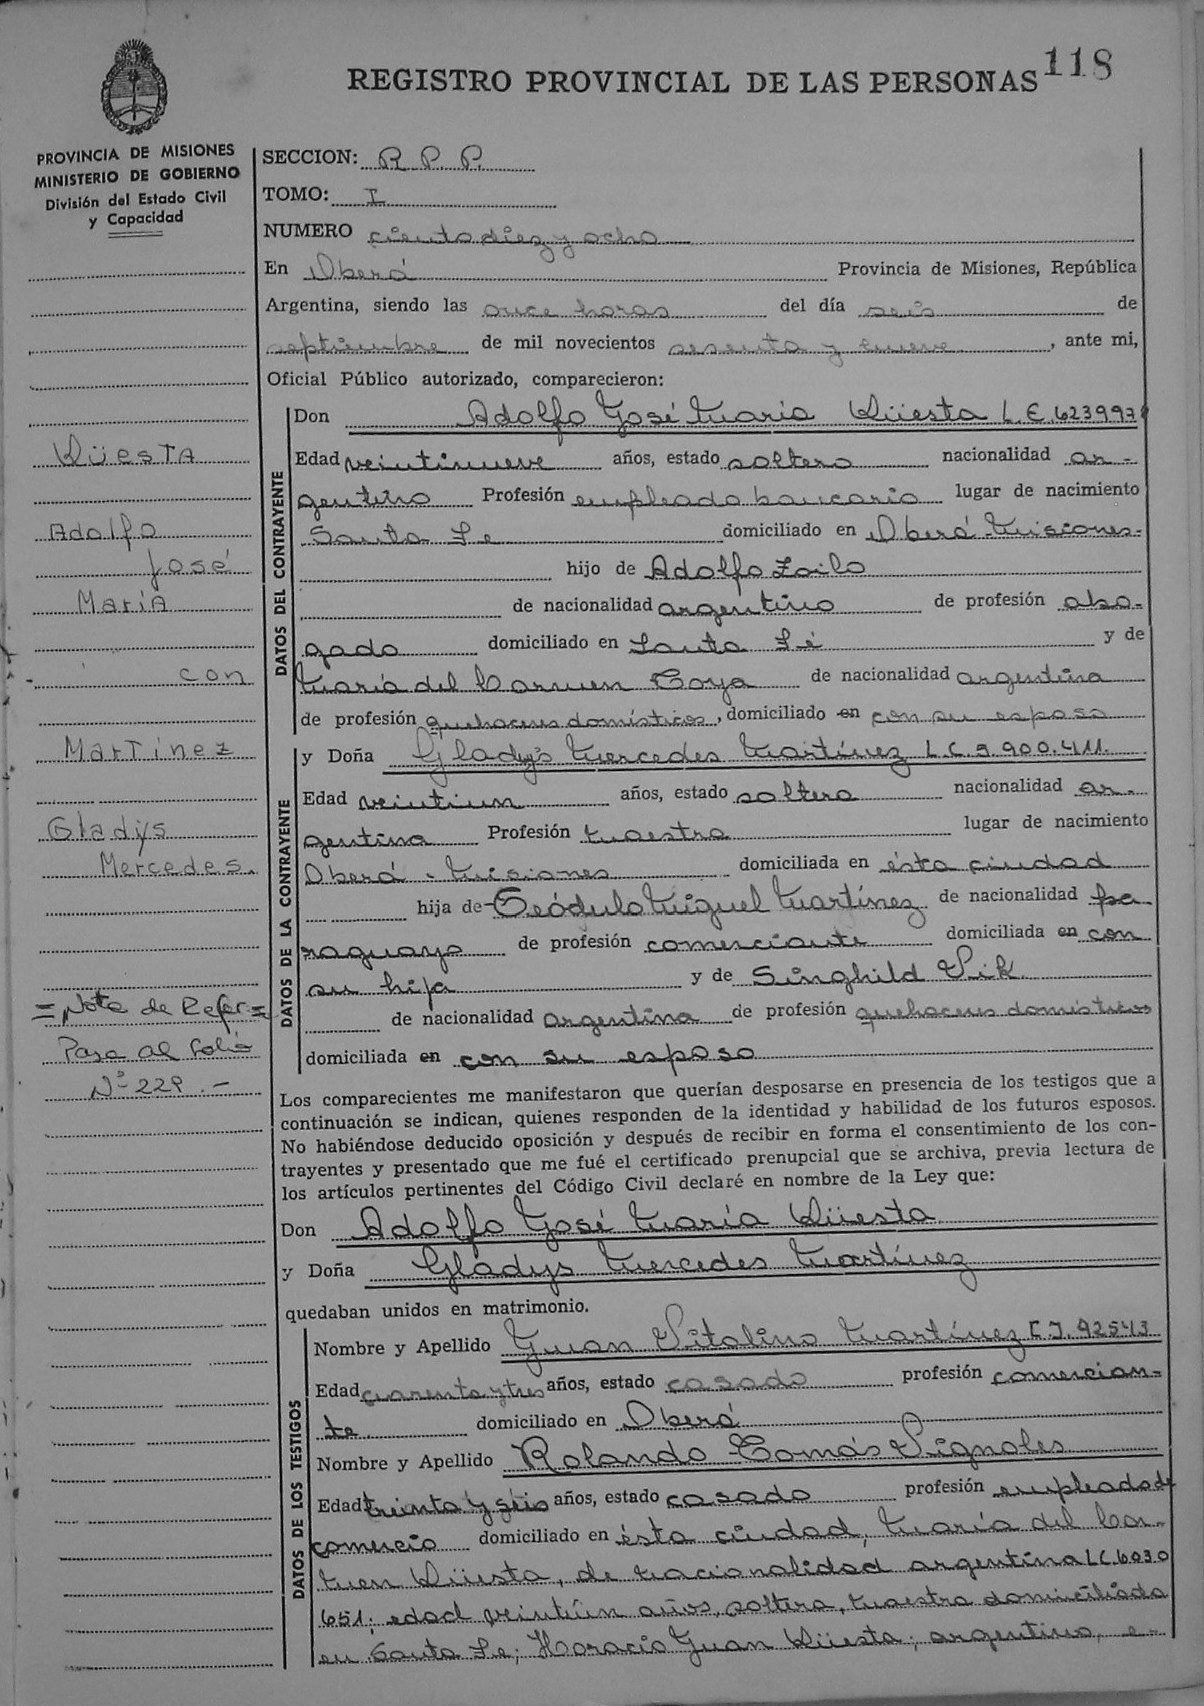 118
REGISTRO PROVINCIAL DE LAS PERSONAS
PROVINCIA DE MISIONES
MINISTERIO DE GOBIERNO
División del Estado Civil
y Capacidad
KÜESTA
Adolfo
José
María
con
Martinez
Gladys
Mercedes.
= Nota de Refer =
Pasa al folio
Nº 229.-
SECCION: R. P. P.
TOMO: I
NUMERO ciento diez y ocho
En Oberá Provincia de Misiones, República
Argentina, siendo las once horas del día seis de
septiembre de mil novecientos sesenta y nueve, ante mi,
Oficial Público autorizado, comparecieron:
DATOS DEL CONTRAYENTE
Don Adolfo José María Küesta L.E. 623997
Edad veintinueve años, estado soltero nacionalidad ar-
gentino Profesión empleado bancario lugar de nacimiento
Santa Fe domiciliado en Oberá-Misiones-
hijo de Adolfo Zoilo
de nacionalidad argentino de profesión abo-
gado domiciliado en Santa Fé y de
María del Carmen Coya de nacionalidad argentina
de profesión quehaceres domésticos, domiciliado en con su esposo
DATOS DE LA CONTRAYENTE
y Doña Gladys Mercedes Martínez L.C. 5.900.411.
Edad veintiun años, estado soltera nacionalidad ar-
gentina Profesión Maestra lugar de nacimiento
Oberá - Misiones domiciliada en ésta ciudad
hija de Teódulo Miguel Martínez de nacionalidad pa
raguayo de profesión comerciante domiciliada en con
su hija y de Singhild Vik
de nacionalidad argentina de profesión quehaceres domésticos
domiciliada en con su esposo
Los comparecientes me manifestaron que querían desposarse en presencia de los testigos que a
continuación se indican, quienes responden de la identidad y habilidad de los futuros esposos.
No habiéndose deducido oposición y después de recibir en forma el consentimiento de los con-
trayentes y presentado que me fué el certificado prenupcial que se archiva, previa lectura de
los artículos pertinentes del Código Civil declaré en nombre de la Ley que:
Don Adolfo José María Küesta
y Doña Gladys Mercedes Martínez
quedaban unidos en matrimonio.
DATOS DE LOS TESTIGOS
Nombre y Apellido Juan Vitalino Martínez C.I. 92543
Edad cuarenta y tres años, estado casado profesión comercian-
te domiciliado en Oberá
Nombre y Apellido Rolando Tomás Vignoles
Edad treinta y seis años, estado casado profesión empleado de
comercio domiciliado en ésta ciudad, María del Car-
men Küesta, de nacionalidad argentina L.C. 6.030
651; edad veintiún años, soltera, Maestra domiciliada
en Santa Fe; Horacio Juan Küesta; argentino, e-